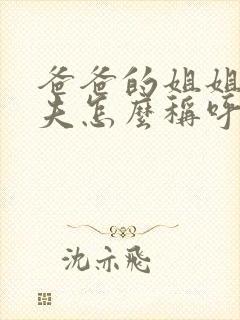 爸爸的姐姐
夫怎麼稱呼
沈亦飛